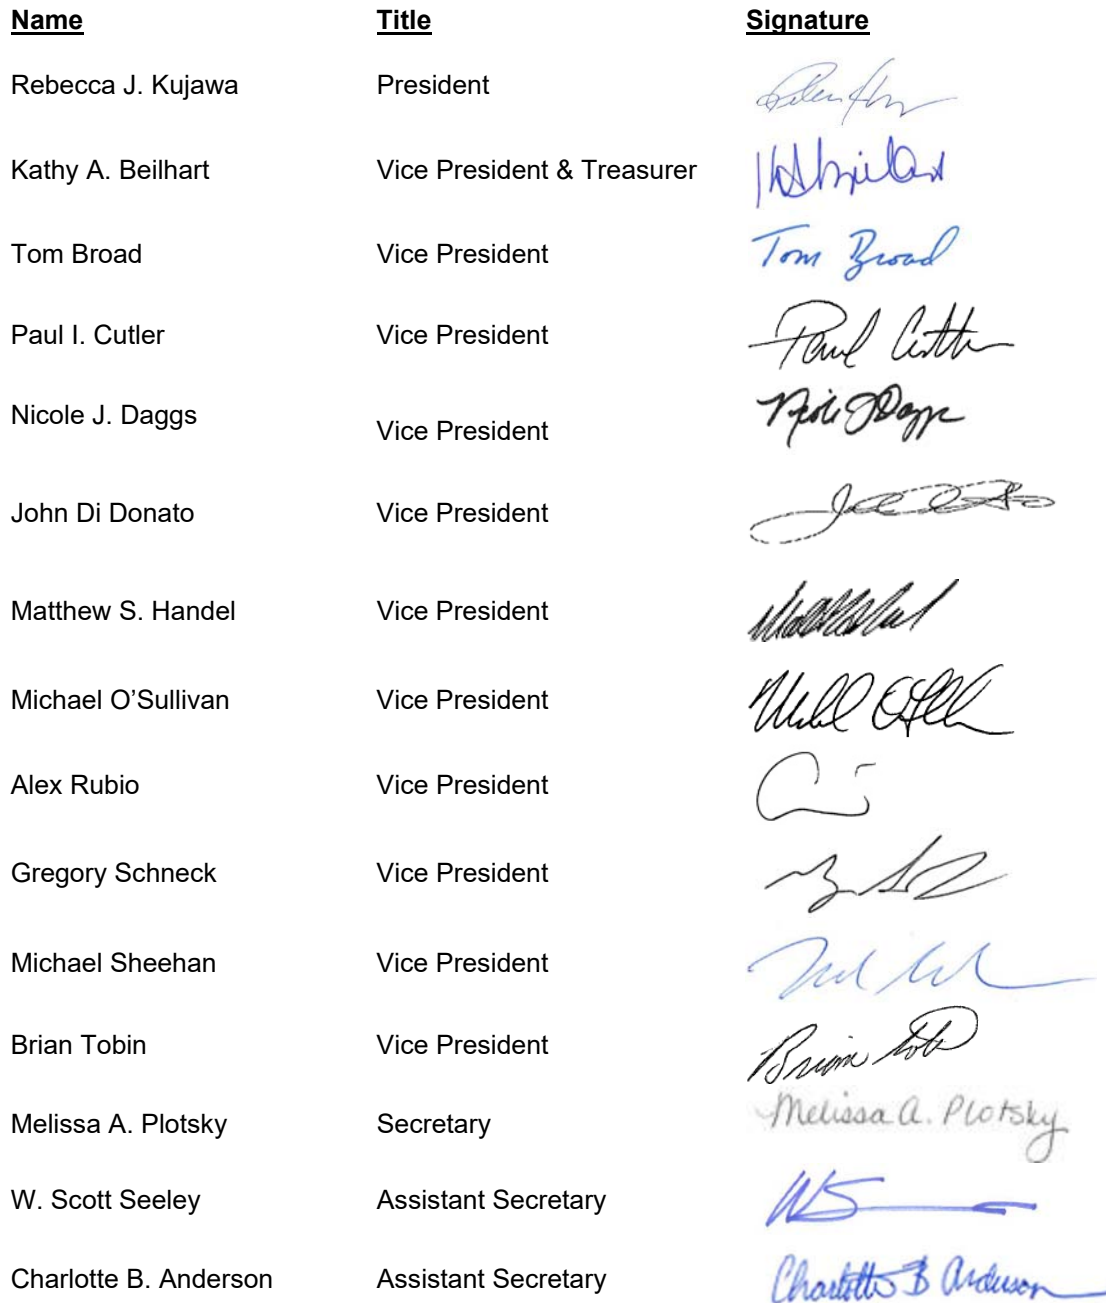 Name Title Signature
Rebecca J. Kujawa President
Kathy A. Beilhart Vice President & Treasurer
Tom Broad Vice President Tom Broad
Paul I. Cutler Vice President Paul
Nicole J. Daggs Vice President Nicole J Daggs
John Di Donato Vice President
Matthew S. Handel Vice President
Michael O’Sullivan Vice President
Alex Rubio Vice President
Gregory Schneck Vice President
Michael Sheehan Vice President
Brian Tobin Vice President Brian
Melissa A. Plotsky Secretary Melissa A. Plotsky
W. Scott Seeley Assistant Secretary WS
Charlotte B. Anderson Assistant Secretary Charlotte B Anderson